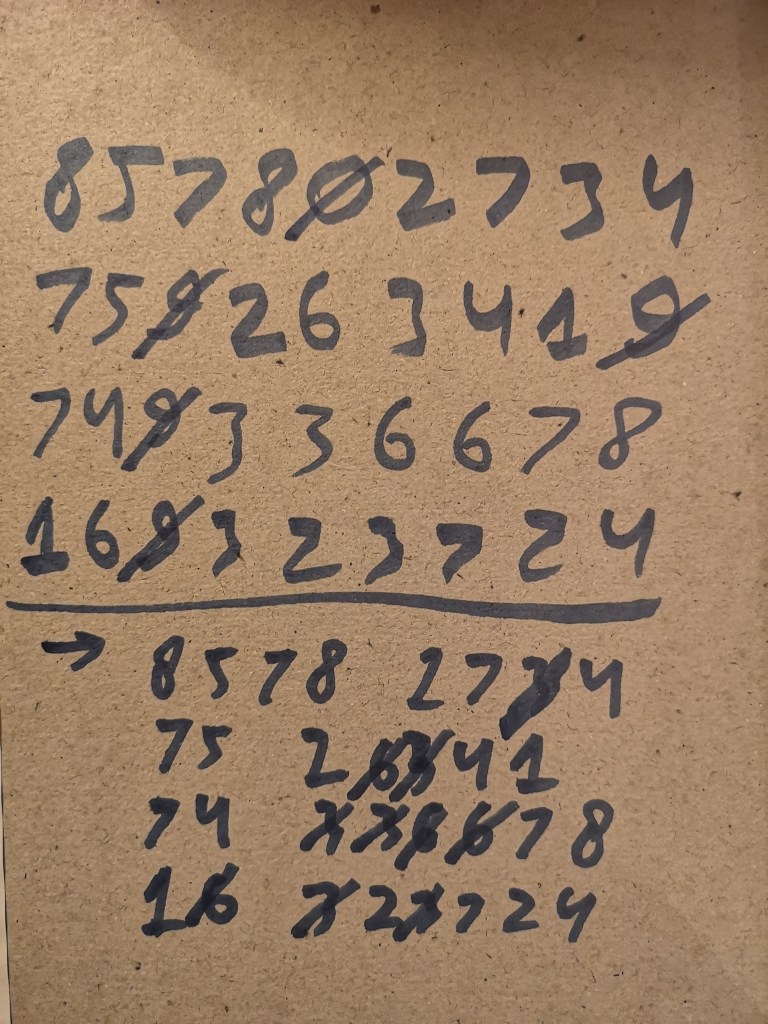 857802734
759263419
749336678
169323724
→ 8578 2734
75 26341
74 336678
16 323724